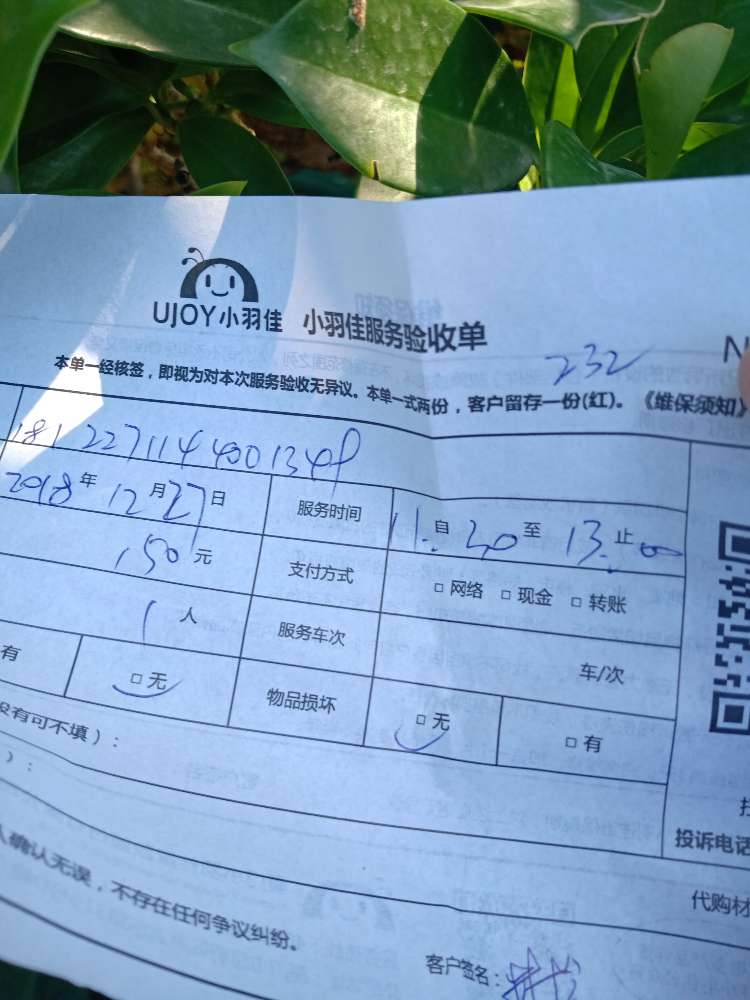 UJOY小羽佳 小羽佳服务验收单
N
232
本单一经核签，即视为对本次服务验收无异议。本单一式两份，客户留存一份(红)。《维保须知》
2018年12月27日 服务时间 11:30 自 至 13:00 止
150元 支付方式 □ 网络 □ 现金 □ 转账
1人 服务车次 车/次
有 □ 无 物品损坏 □ 无 □ 有
没有可不填）：
）：
投诉电话
代购材
人确认无误，不存在任何争议纠纷。
客户签名：